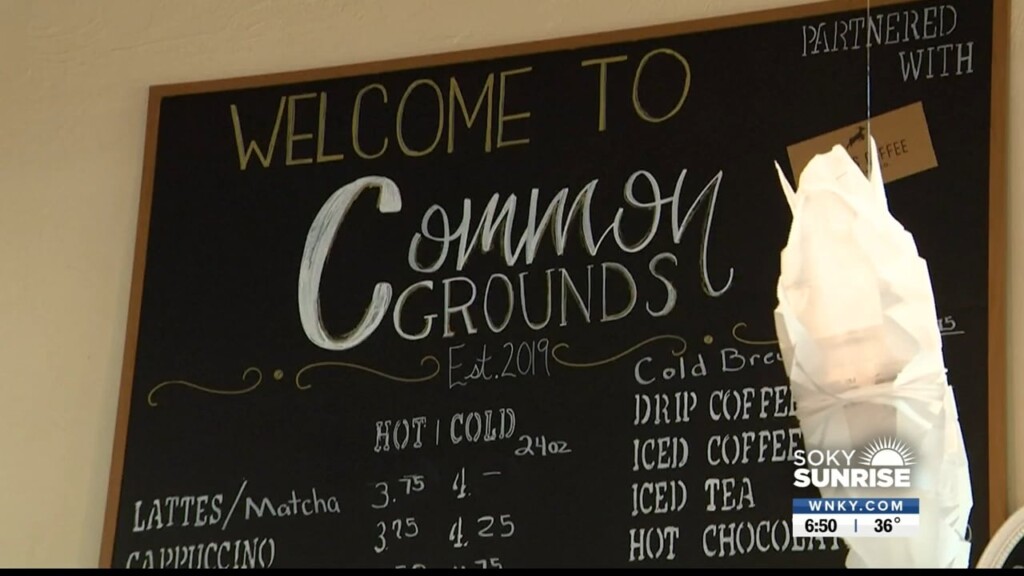 PARTNERED
WITH
WELCOME TO
Common
GROUNDS
Est. 2019
HOT | COLD
24oz
LATTES/Matcha 3.75 4.-
CAPPUCCINO 3.75 4.25
Cold
DRIP COFFEE
ICED COFFEE
ICED TEA
HOT CHOCOLATE
SOKY
SUNRISE
WNKY.COM
6:50 | 36°